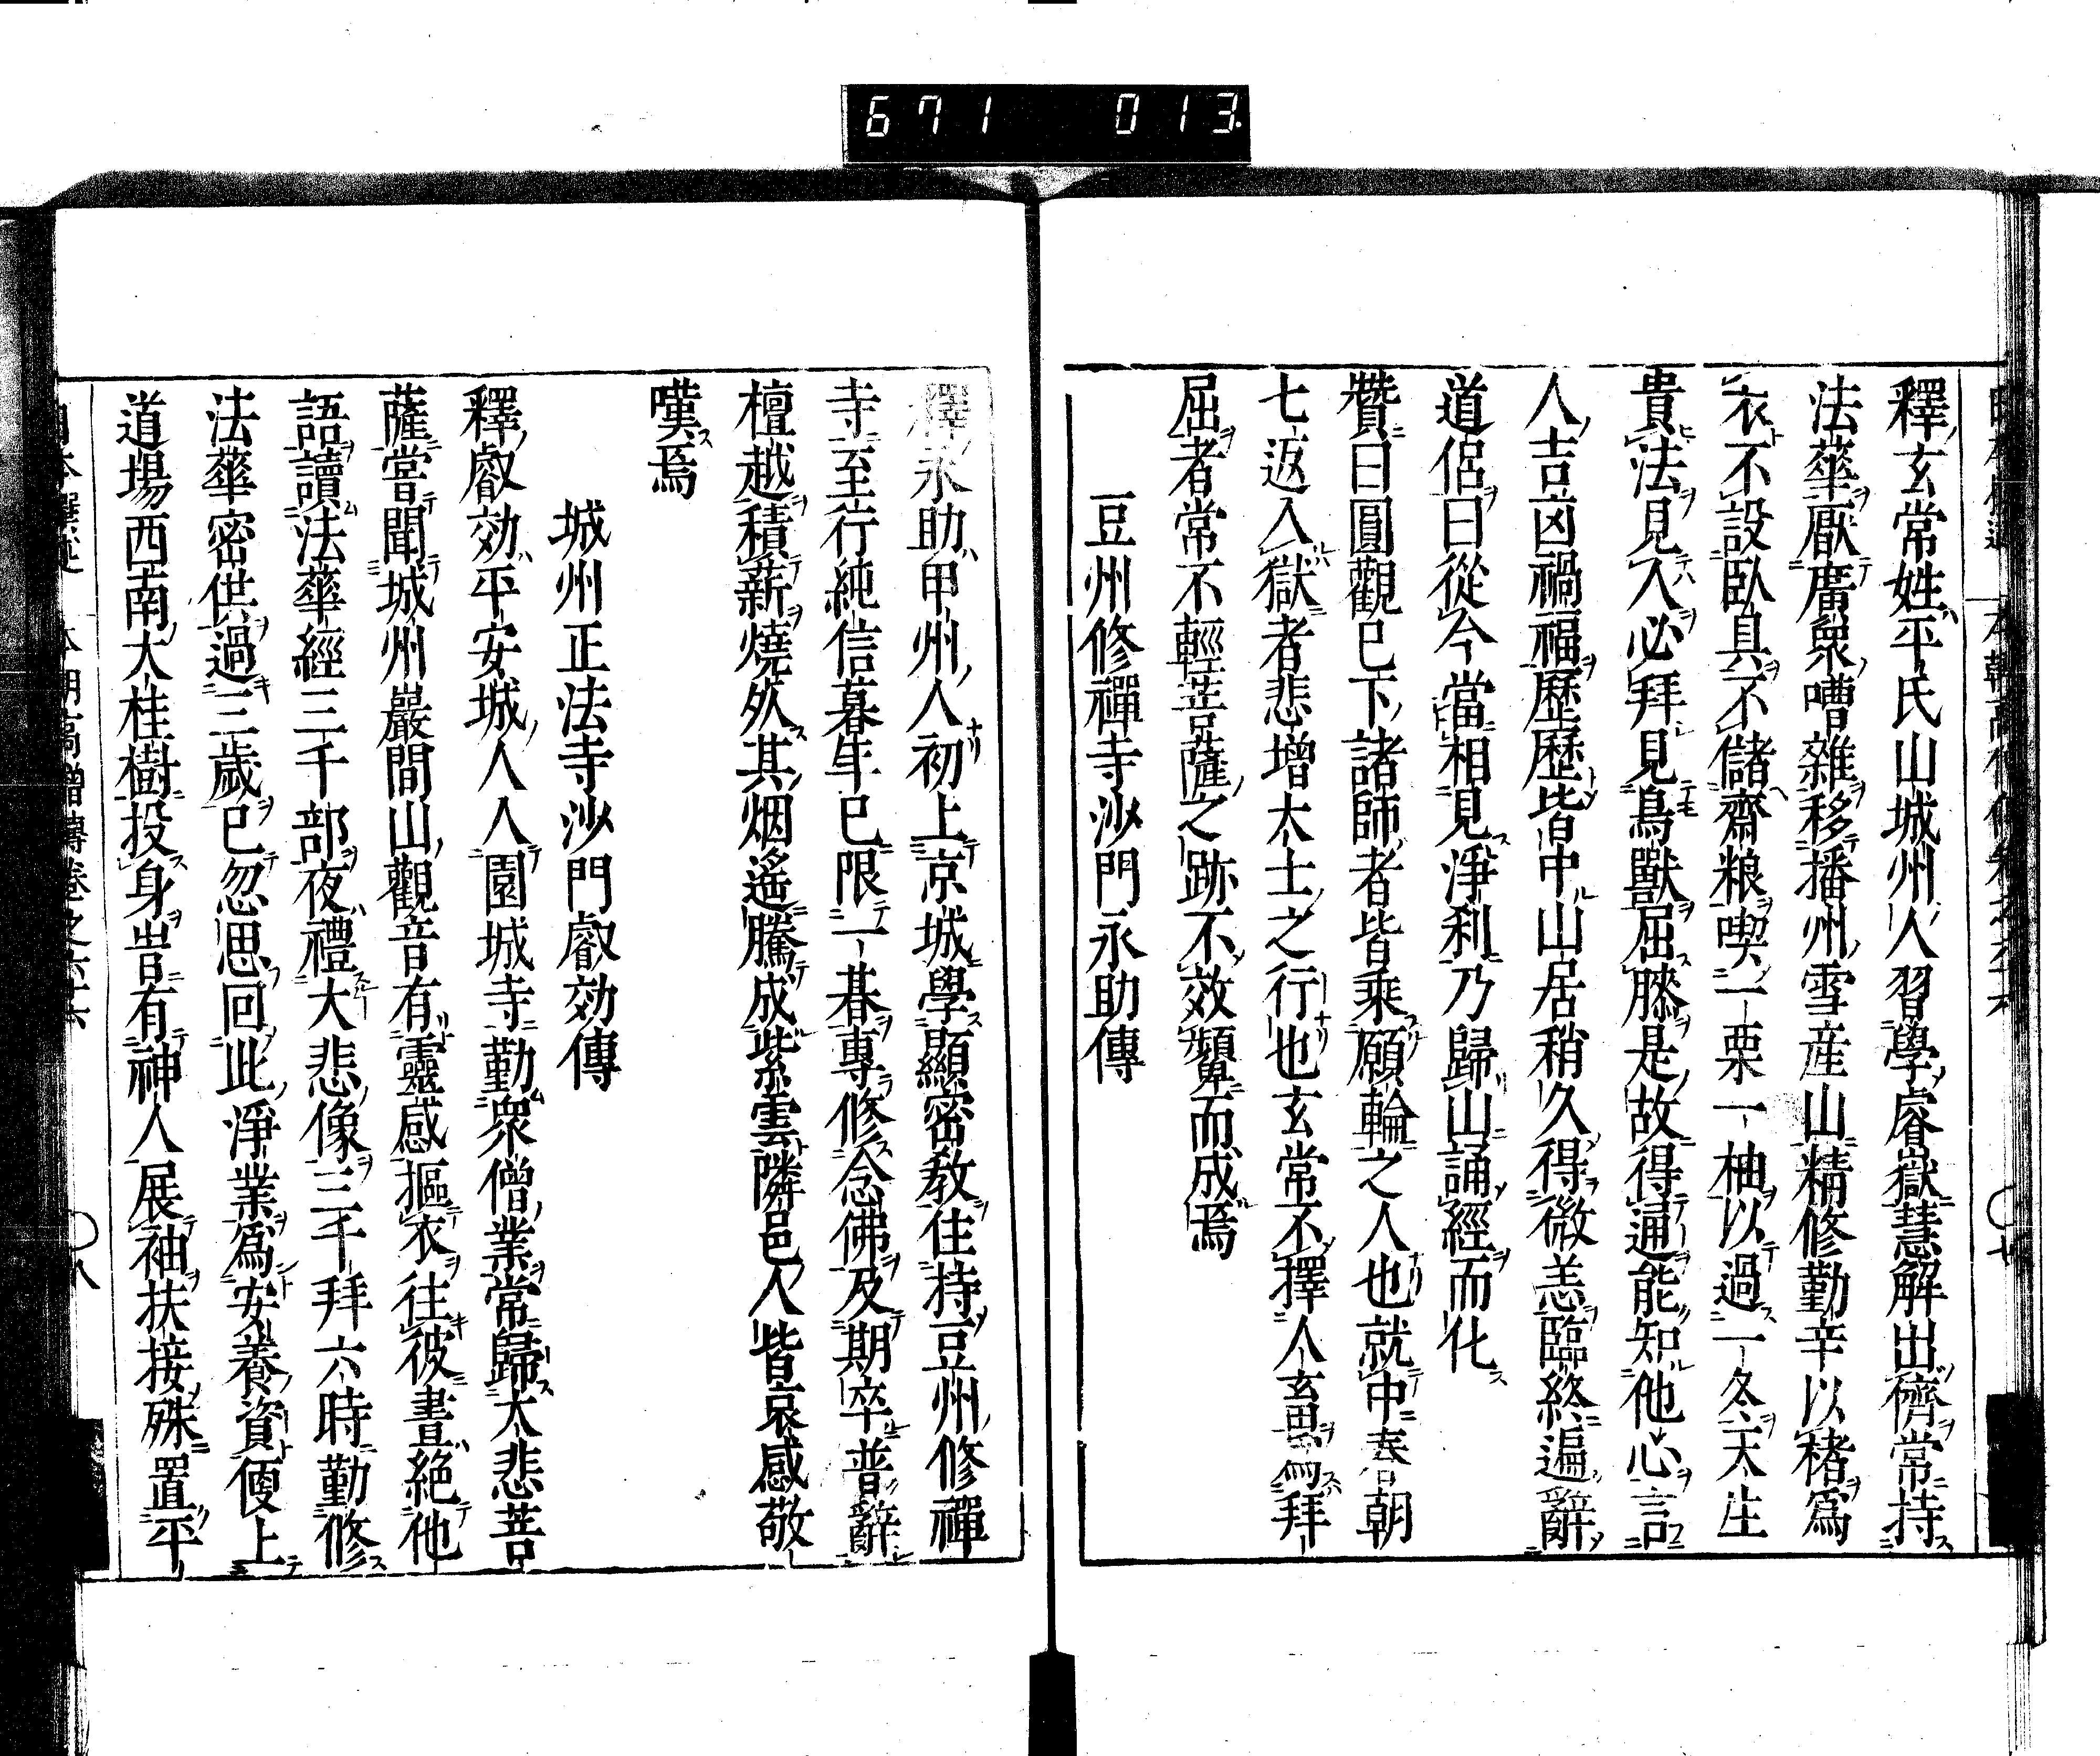 671 013
釋玄常姓平氏山城州人習學睿嶽慧解出儕常持
法華厭廣衆嘈雜移播州雪彦山精修勤辛以楮爲
衣不設臥具不儲齋粮喫一栗一柚以過一冬天生
貴法見人必拜見鳥獸屈膝是故得通能知他心言
人吉凶禍福歷歷皆中山居稍久得微恙臨終遍辭
道侶曰從今當相見淨刹乃歸山誦經而化
贊曰圓觀已下諸師者皆乘願輪之人也就中春朝
七返入獄者悲增大士之行也玄常不擇人畜爲拜
屈者常不輕菩薩之跡不效顰而成焉
豆州修禪寺沙門永助傳
釋永助甲州人初上京城學顯密教住持豆州修禪
寺至行純信暮年已限一朞專修念佛及期卒普辭
檀越積薪燒灰其烟遙騰成紫雲隣邑人皆哀感敬
嘆焉
城州正法寺沙門叡効傳
釋叡効平安城人入園城寺勤衆僧業常歸大悲菩
薩嘗聞城州巖間山觀音有靈感摳衣往彼晝絕他
語讀法華經三千部夜禮大悲像三千拜六時勤修
法華密供過三歲已忽思回此淨業爲安養資便上
道場西南大桂樹投身岩有神人展袖扶接殊置平
日本撰述 本朝高僧傳卷之六十六 〇八